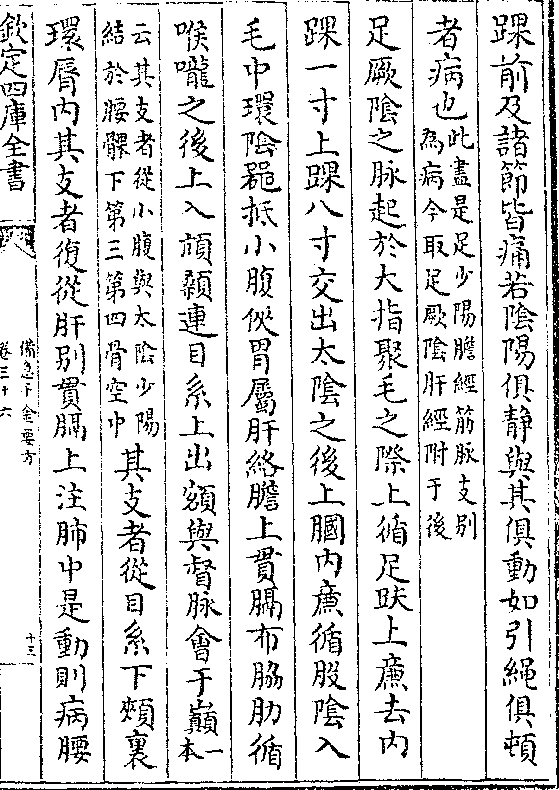 踝前及諸節皆痛若隂陽俱静與其俱動如引繩俱頓
者病也此盡是足少陽膽經筋脉支别
為病今取足厥隂肝經附于後
足厥隂之脉起於大指聚毛之際上循足趺上廉去内
踝一寸上踝八寸交出太隂之後上膕内廉循股隂入
毛中環隂器抵小腹俠胃屬肝絡膽上貫膈布脇肋循
喉嚨之後上入頏顙連目系上出額與督脉會于巔一
本
云其支者從小腹與太隂少陽
結於腰髁下第三第四骨空中其支者從目系下頰裏
環脣内其支者復從肝别貫膈上注肺中是動則病腰
欽定四庫全書
備急千金要方
卷三十六
十三